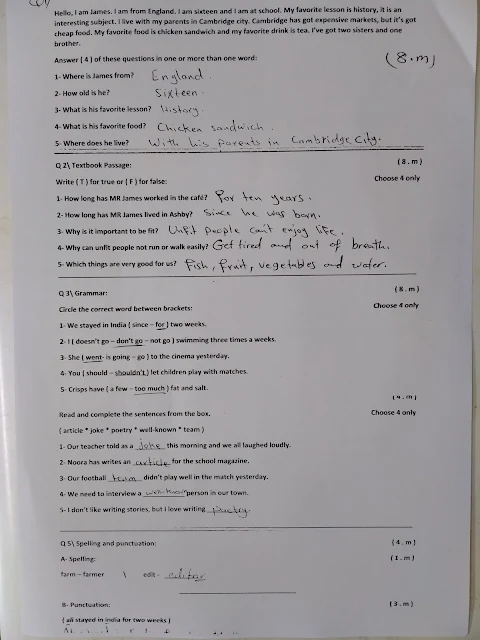 Hello, I am James. I am from England. I am sixteen and I am at school. My favorite lesson is history, it is an
interesting subject. I live with my parents in Cambridge city. Cambridge has got expensive markets, but it's got
cheap food. My favorite food is chicken sandwich and my favorite drink is tea. I've got two sisters and one
brother.
Answer ( 4 ) of these questions in one or more than one word: (8.m)
1- Where is James from? England.
2- How old is he? Sixteen.
3- What is his favorite lesson? History.
4- What is his favorite food? Chicken sandwich.
5- Where does he live? With his parents in Cambridge City.
Q 2\ Textbook Passage: (8.m)
Write ( T ) for true or ( F ) for false: Choose 4 only
1- How long has MR James worked in the café? For ten years.
2- How long has MR James lived in Ashby? Since he was born.
3- Why is it important to be fit? Unfit people can't enjoy life.
4- Why can unfit people not run or walk easily? Get tired and out of breath.
5- Which things are very good for us? Fish, fruit, vegetables and water.
Q 3\ Grammar: (8.m)
Circle the correct word between brackets: Choose 4 only
1- We stayed in India ( since – for ) two weeks.
2- I ( doesn't go – don't go – not go ) swimming three times a weeks.
3- She ( went- is going – go ) to the cinema yesterday.
4- You ( should – shouldn't ) let children play with matches.
5- Crisps have ( a few – too much ) fat and salt.
(4.m)
Read and complete the sentences from the box. Choose 4 only
( article * joke * poetry * well-known * team )
1- Our teacher told as a joke this morning and we all laughed loudly.
2- Noora has writes an article for the school magazine.
3- Our football team didn't play well in the match yesterday.
4- We need to interview a well-known person in our town.
5- I don't like writing stories, but I love writing poetry.
Q 5\ Spelling and punctuation: (4.m)
A- Spelling: (1.m)
farm – farmer \ edit - editor
B- Punctuation: (3.m)
( ali stayed in india for two weeks )